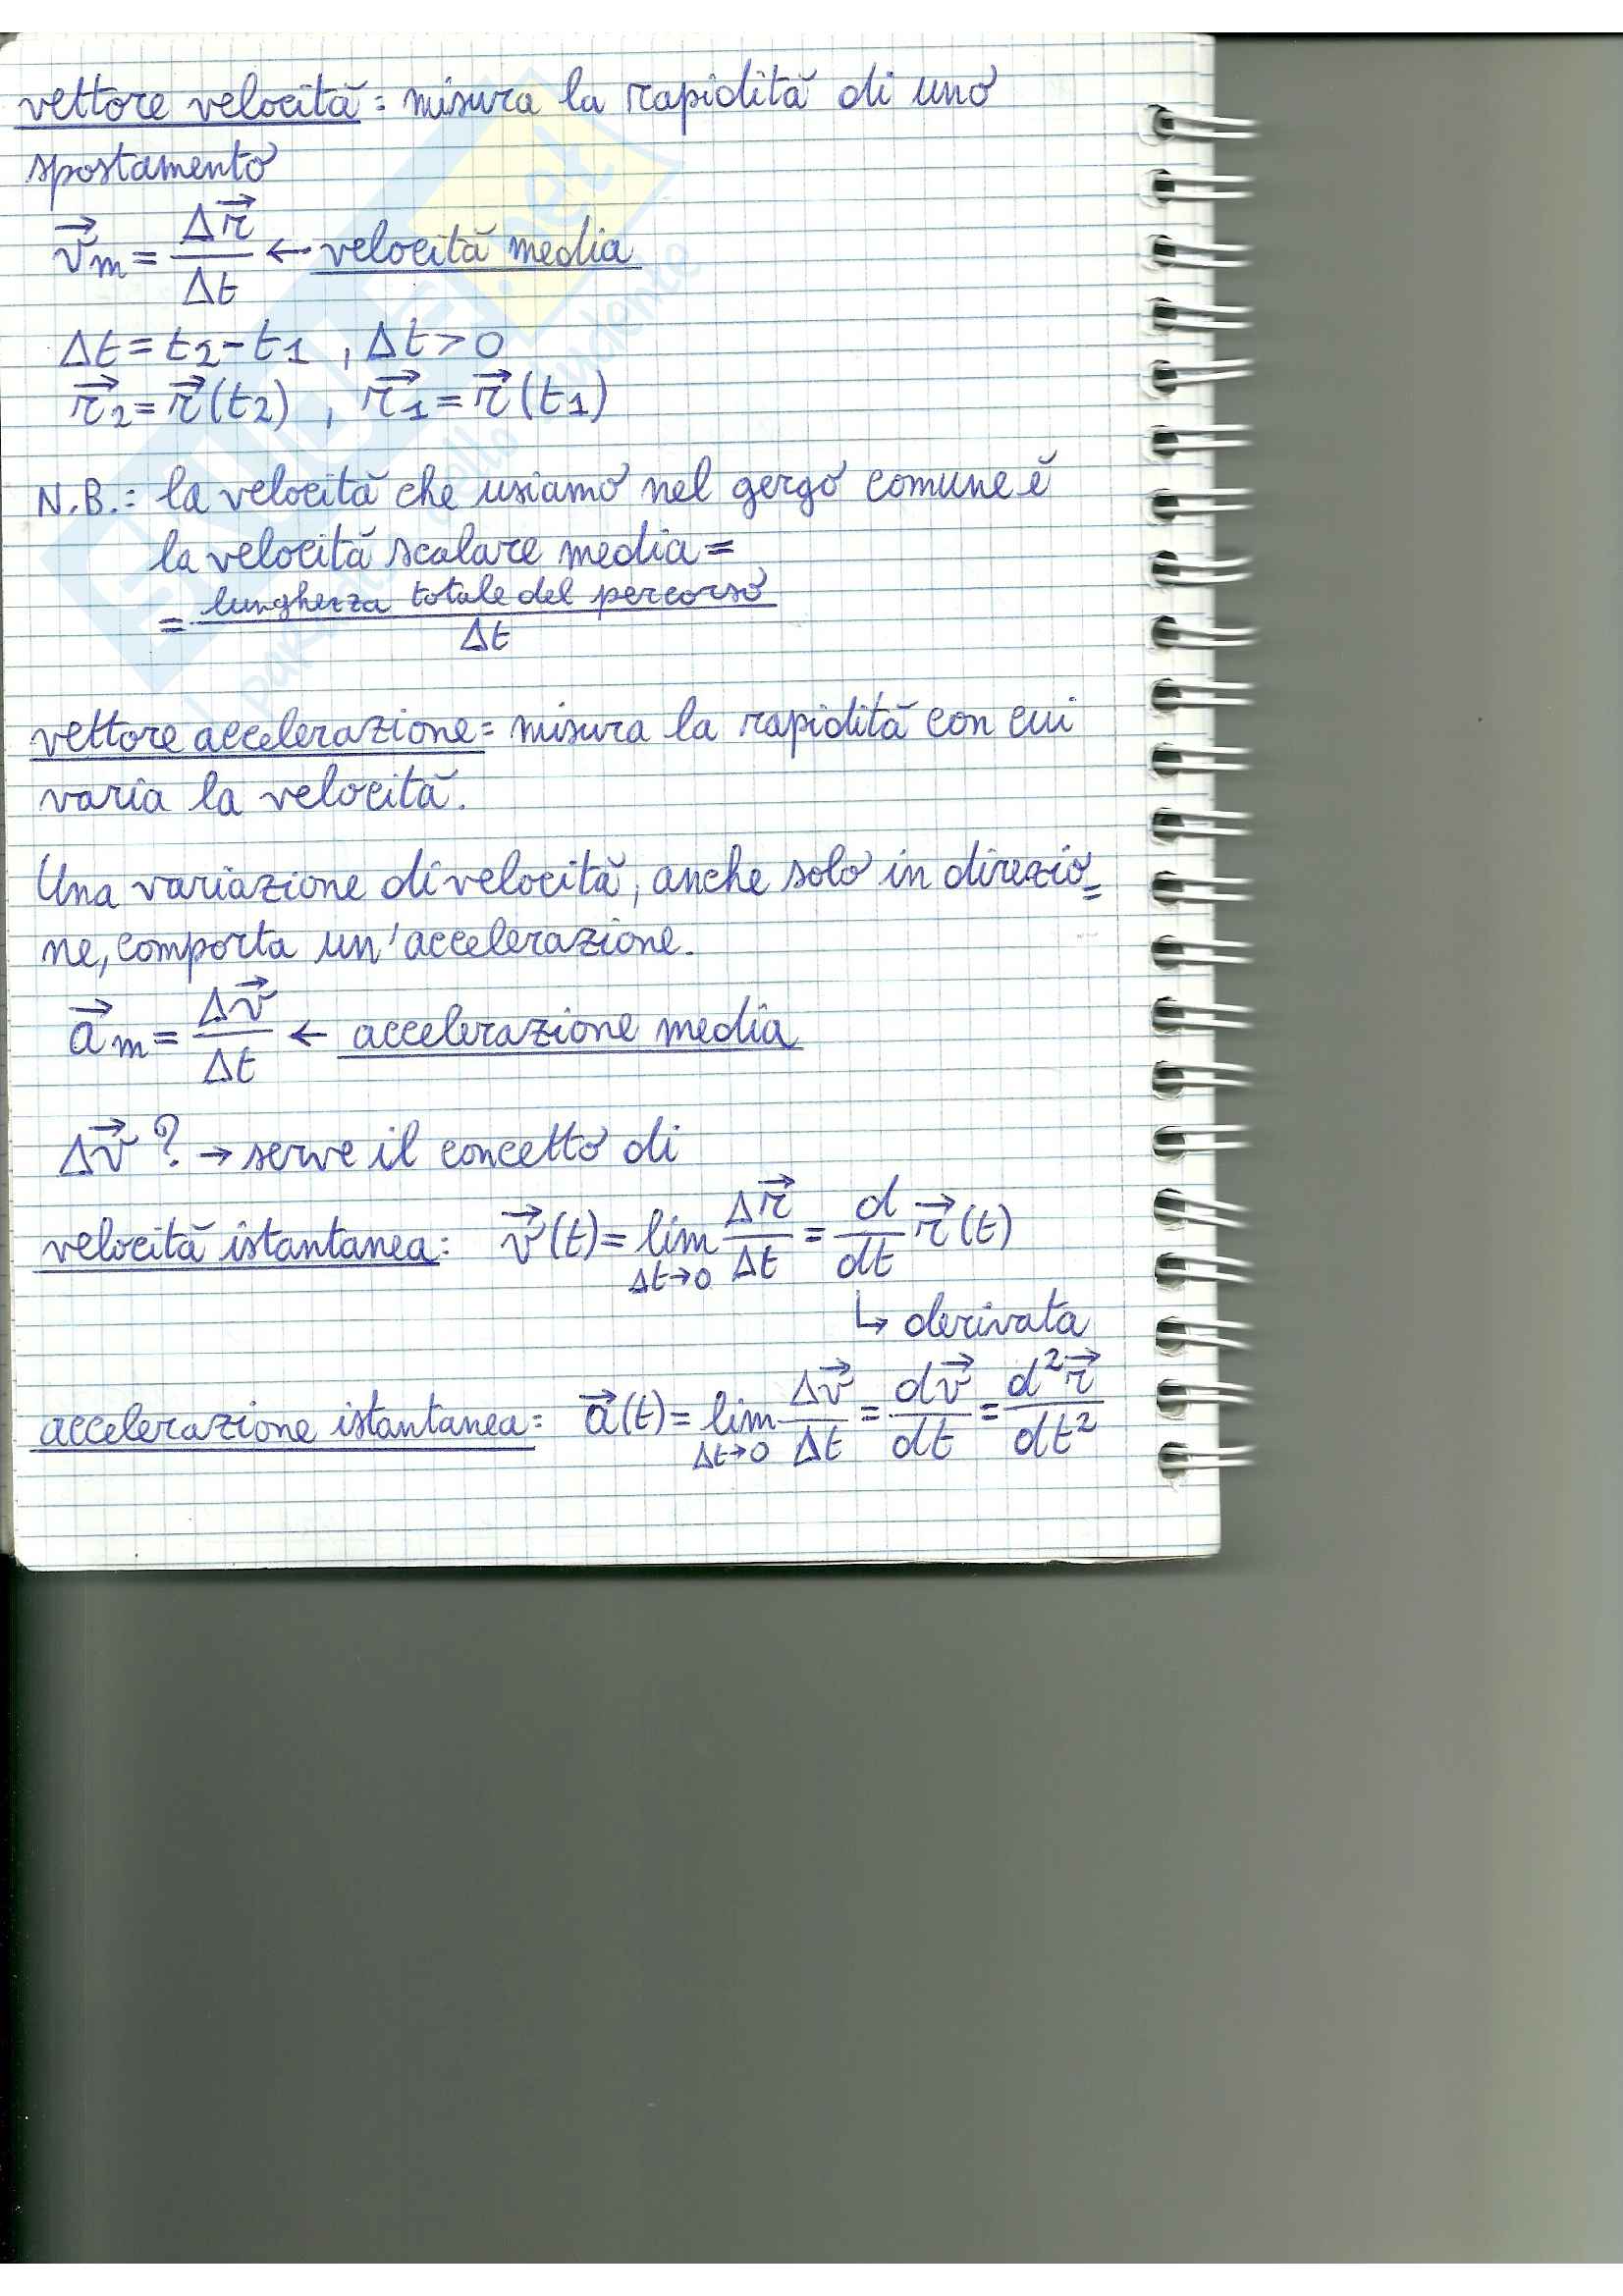 vettore velocità: misura la rapidità di uno
spostamento
v⃗m = Δr⃗/Δt ← velocità media
Δt = t2 - t1 , Δt > 0
r⃗2 = r⃗(t2) , r⃗1 = r⃗(t1)
N.B.: la velocità che usiamo nel gergo comune è
la velocità scalare media =
= lunghezza totale del percorso / Δt
vettore accelerazione: misura la rapidità con cui
varia la velocità.
Una variazione di velocità, anche solo in direzio=
ne, comporta un'accelerazione.
a⃗m = Δv⃗/Δt ← accelerazione media
Δv⃗ ? → serve il concetto di
velocità istantanea: v⃗(t) = lim Δt→0 Δr⃗/Δt = d/dt r⃗(t)
↳ derivata
accelerazione istantanea: a⃗(t) = lim Δt→0 Δv⃗/Δt = dv⃗/dt = d²r⃗/dt²